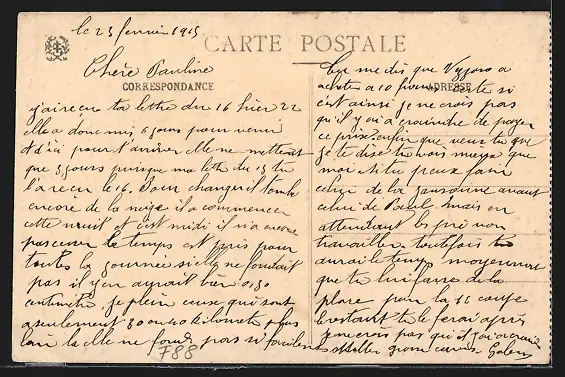 le 23 fevrier 1915
CARTE POSTALE
Chère Pauline
CORRESPONDANCE
j'ai reçu ta lettre du 16 hier 22
elle a donc mis 6 jours pour venir
d'ici pour l'arriver elle ne mettrait
que 3 jours puisque ma lettre du 13 tu
l'a reçu le 16. Pour changer il tombe
encore de la neige il a commencer
cette nuit et c'est midi il n'a encore
pas cesser le temps est pris pour
toutes la journée si elle ne fondait
pas il y en aurait bien 0.30
centimètre je plein ceux qui sont
a seulement 30 ou 40 kilometre plus
loin la elle ne fond pas si facilement
F88
Tu me dis que a
ADRESSE
acheté a 10 francs cette si
c'est ainsi je ne crois pas
qu'il y ou a craindre de payer
ce prix. enfin que veux tu que
je te dise tu vois mieux que
moi. Si tu peux faire
celui de la avant
celui de Paul mais en
attendant le pré non
travailler toutefois tu
aurais le temps moyennant
que tu lui fasse de la
place pour la 1e coupe
le restant tu le ferai après
je ne crois pas qu'il